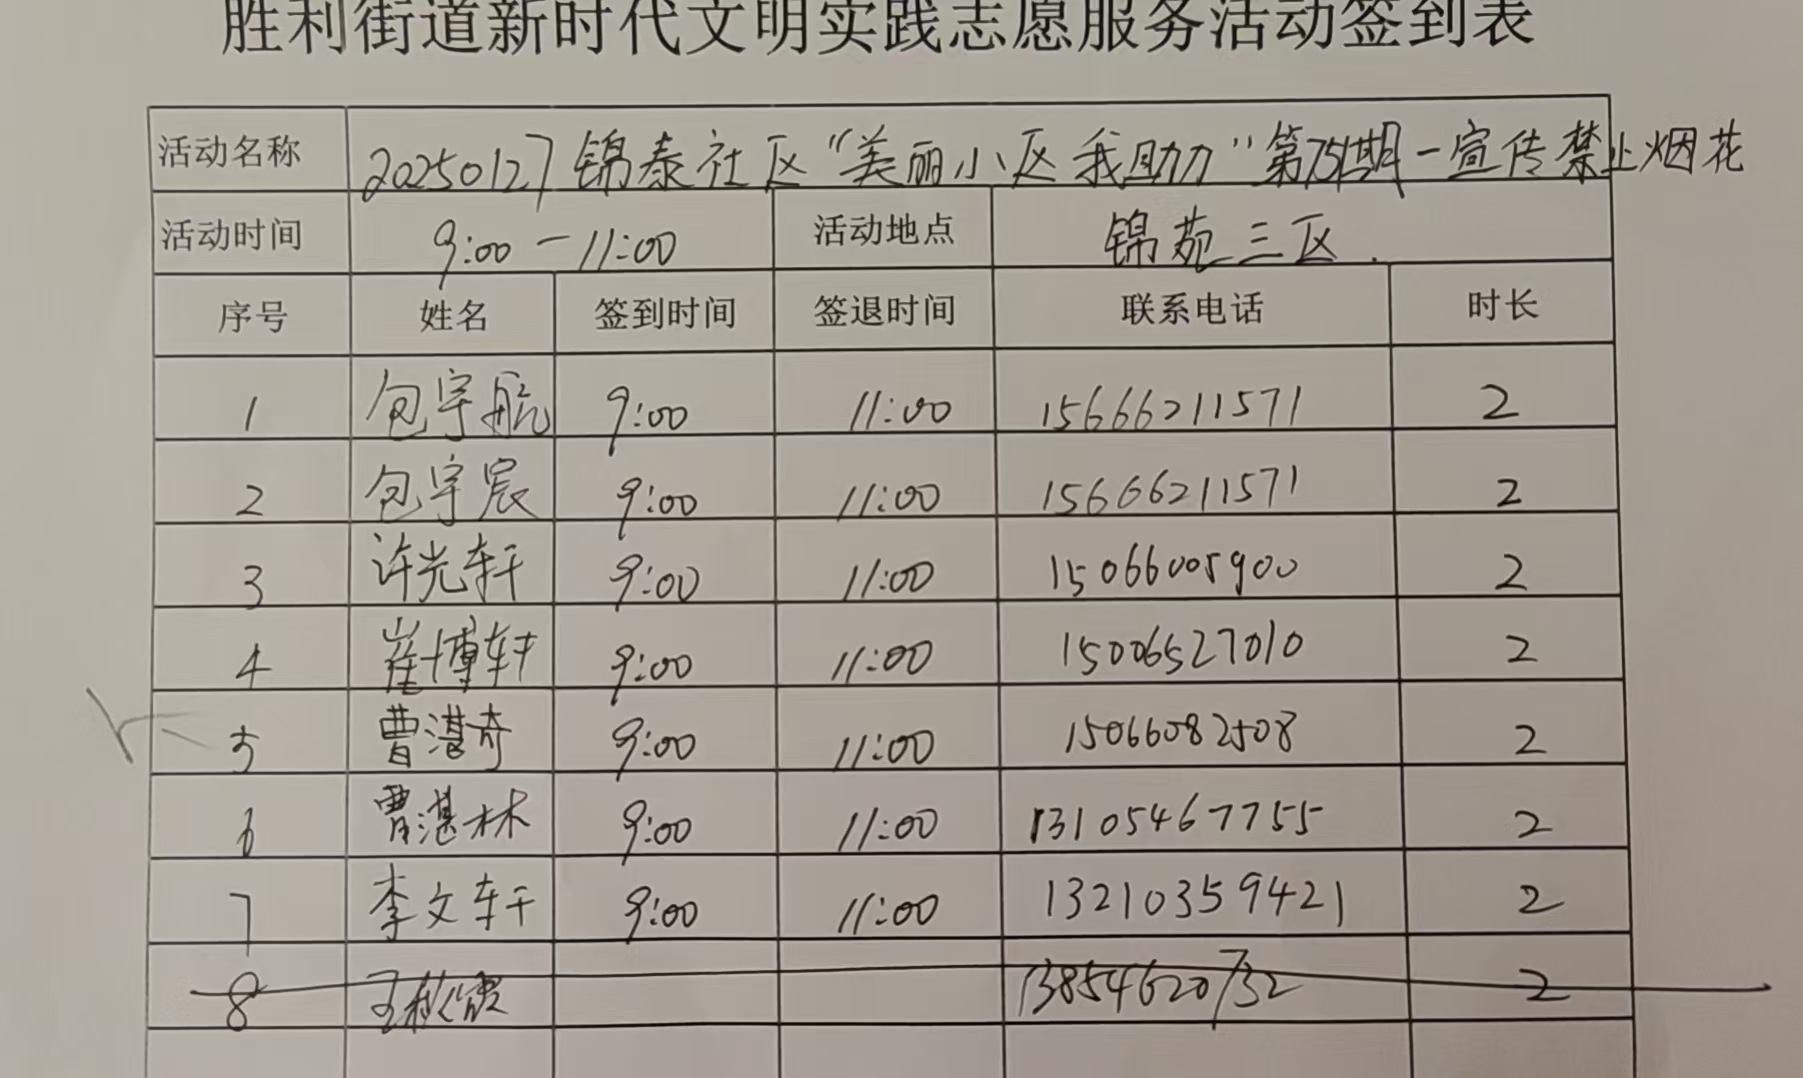 胜利街道新时代文明实践志愿服务活动签到表
活动名称 20250127锦泰社区“美丽小区我助力”第751期一宣传禁止烟花
活动时间 9:00-11:00 活动地点 锦苑三区.
序号 姓名 签到时间 签退时间 联系电话 时长
1 包宇航 9:00 11:00 15666211571 2
2 包宇宸 9:00 11:00 15666211571 2
3 许光轩 9:00 11:00 15066005900 2
4 崔博轩 9:00 11:00 15006527010 2
5 曹湛奇 9:00 11:00 15066082508 2
6 曹湛林 9:00 11:00 13105467755 2
7 李文轩 9:00 11:00 13210359421 2
8 王秋霞 13854620732 2